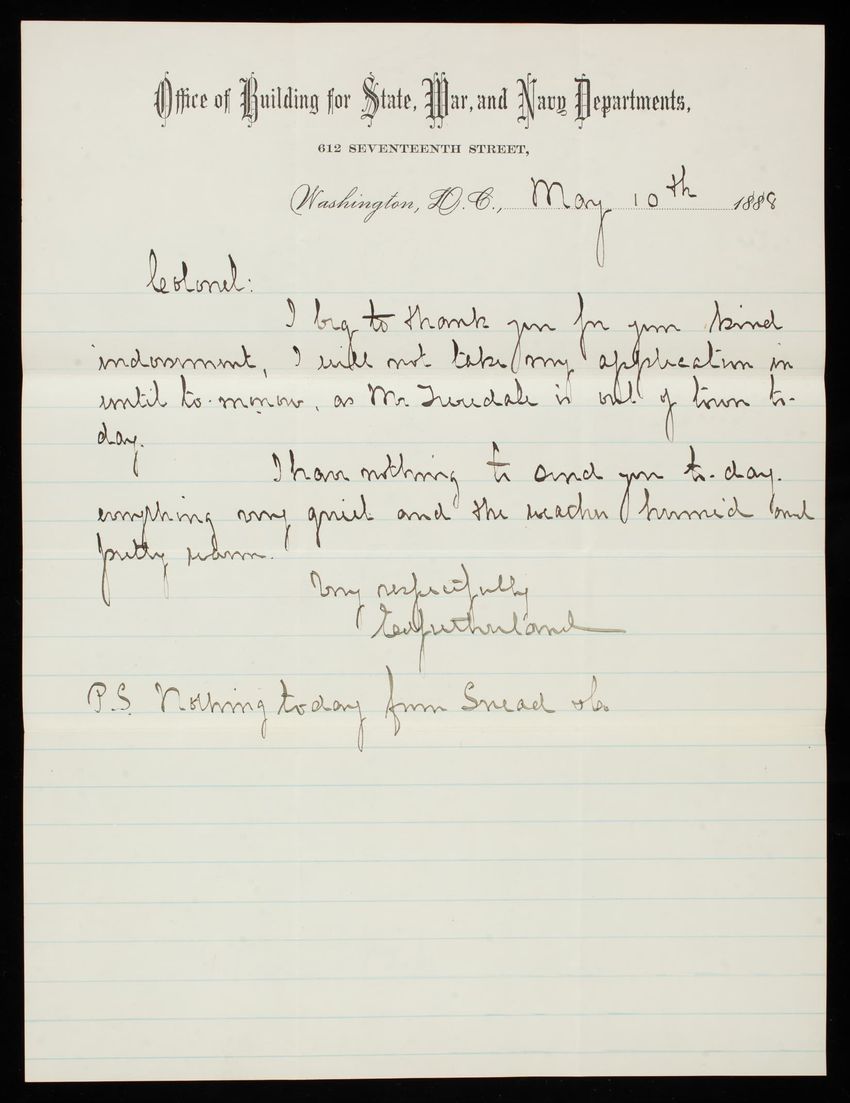 Office of Building for State, War, and Navy Departments,
612 SEVENTEENTH STREET,
Washington, D.C., May 10th 1888
Colonel:
I beg to thank you for your kind
indorsement, I will not take my application in
until to-morrow, as Mr Tweedale is out of town to-
day.
I have nothing to send you to-day.
everything very quiet and the weather humid and
pretty warm.
Very respectfully
Sutherland
P.S. Nothing today from Snead &Co